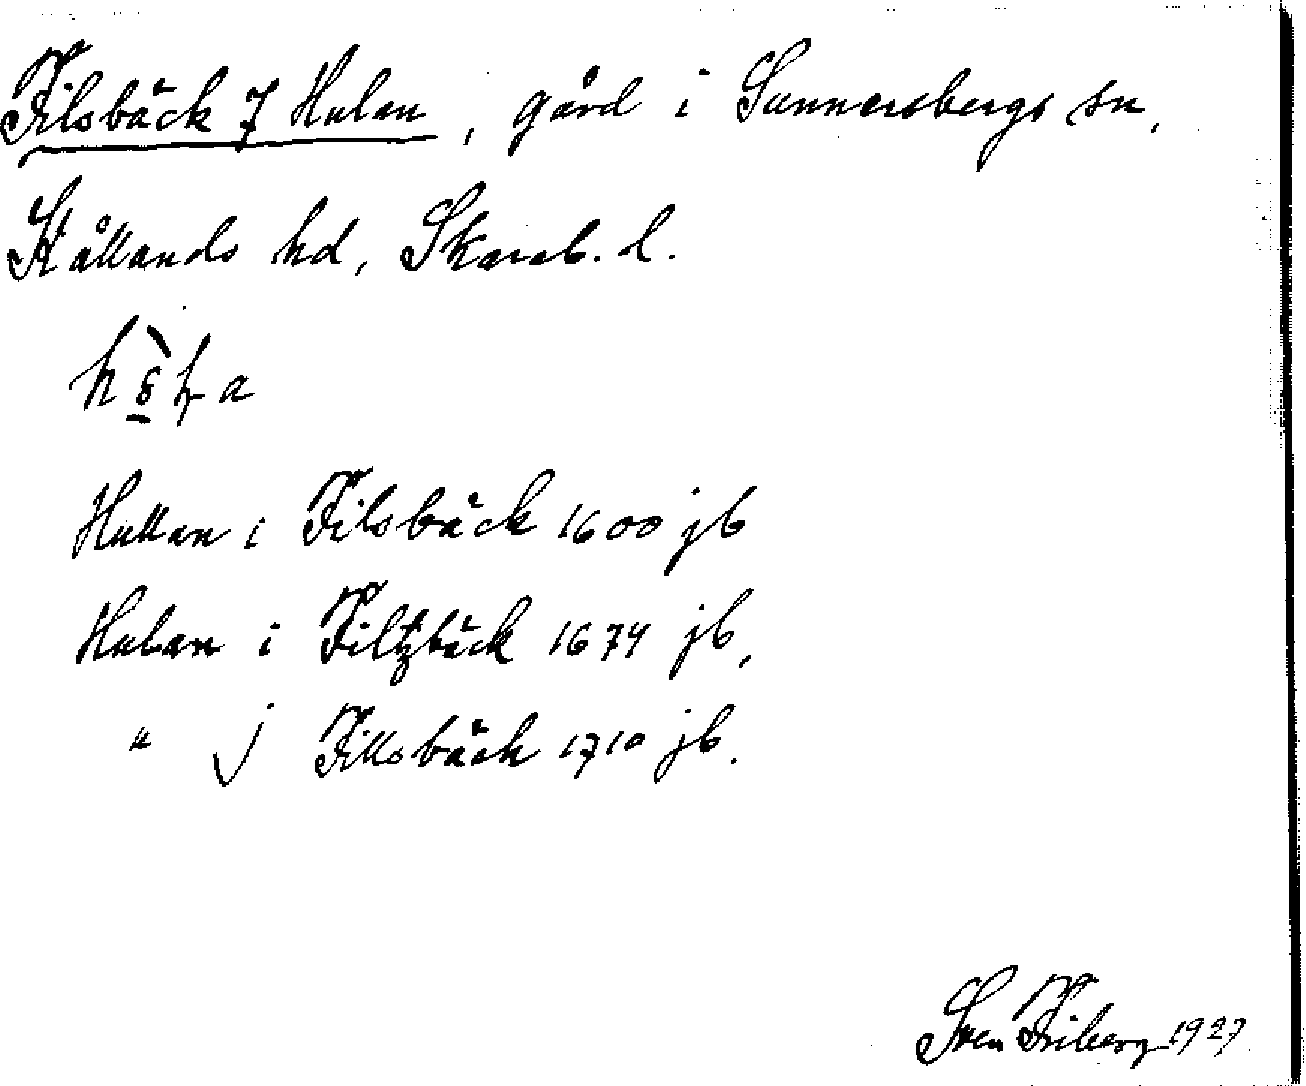 Filsbäck 7 Hulan, gård i Sunnersbergs sn,
Kållands hd, Skarab. l.
Hullan i Filsbäck 1600 jb
Hulan i Filtzbäck 1674 jb,
" j Fillsbäck 1710 jb.
Sven Friberg 1927